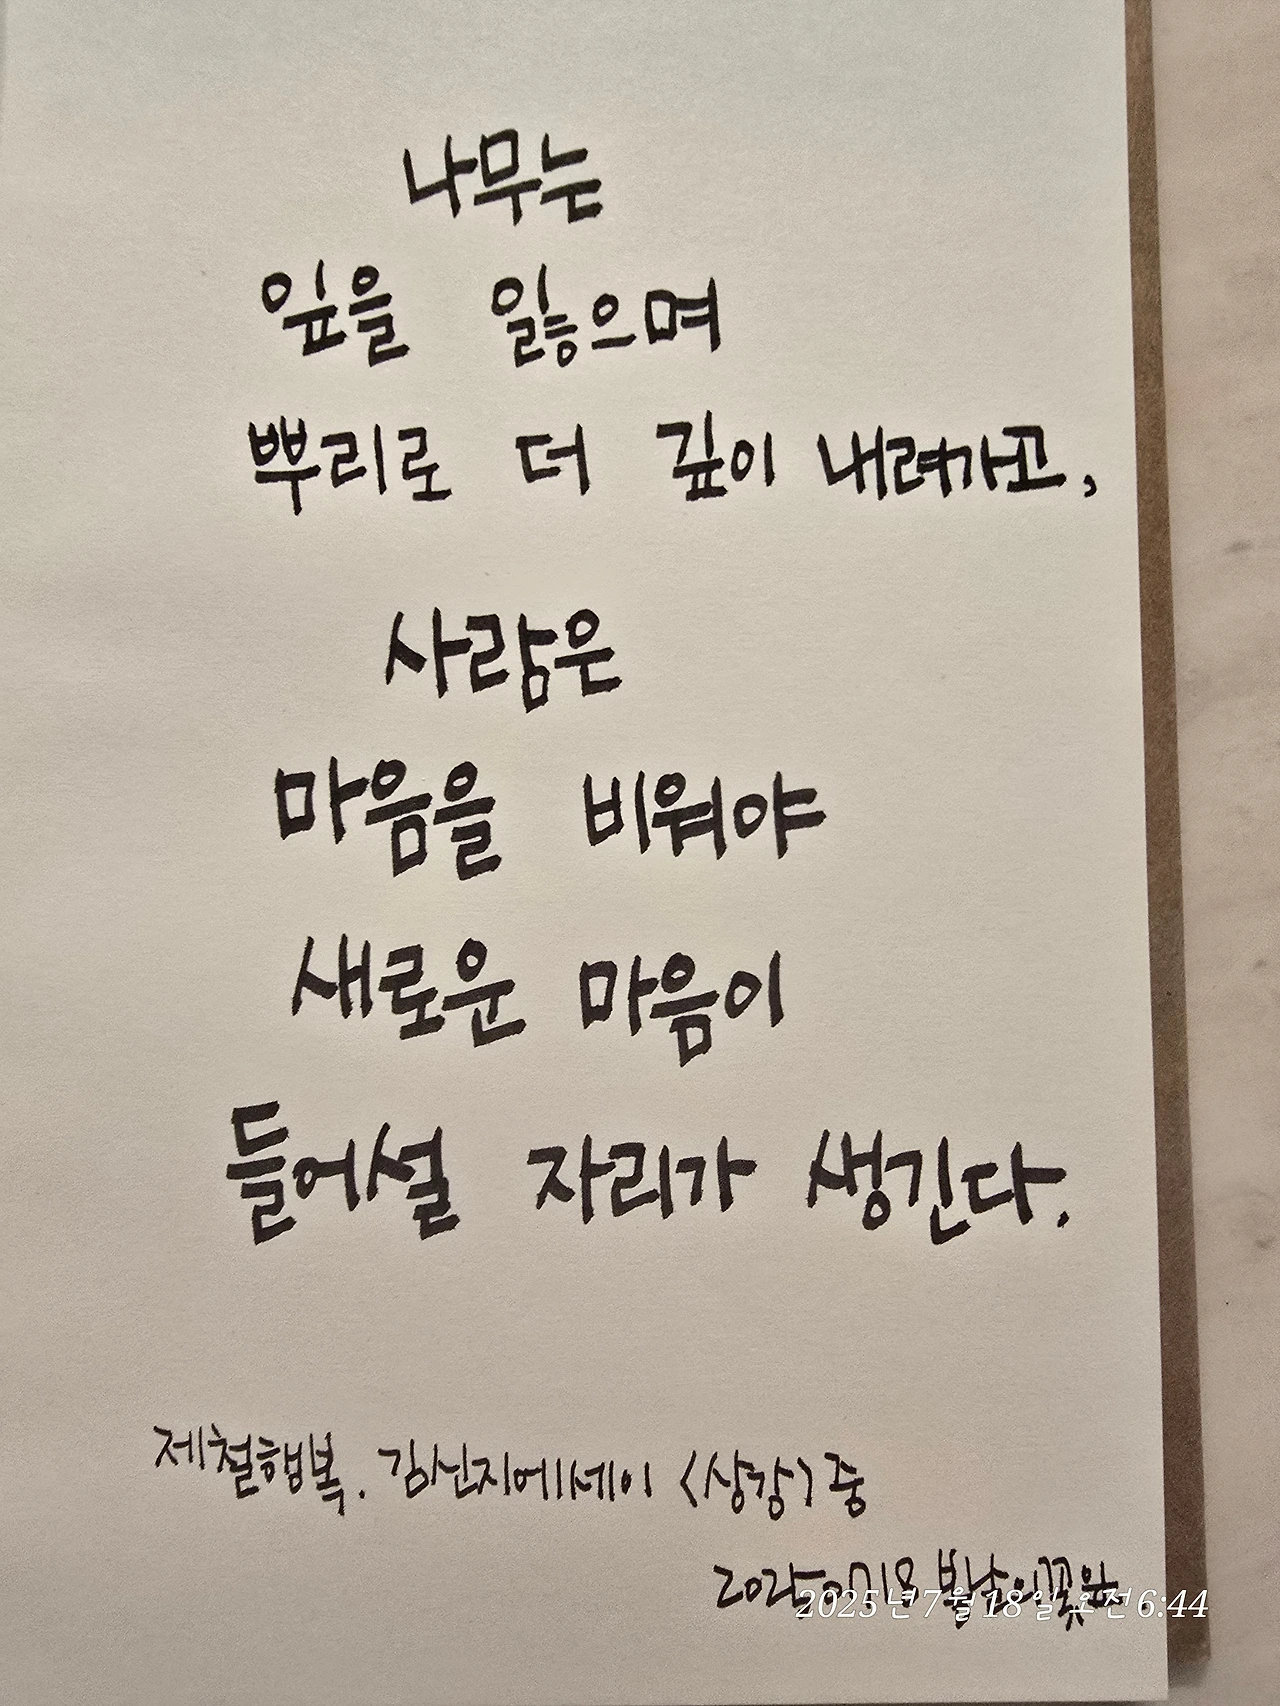 나무는
잎을 잃으며
뿌리로 더 깊이 내려가고,
사람은
마음을 비워야
새로운 마음이
들어설 자리가 생긴다.
제철행복. 김신지에세이 <상강> 중
20250718 봄날의꽃잎
2025년 7월 18일 오전 6:44